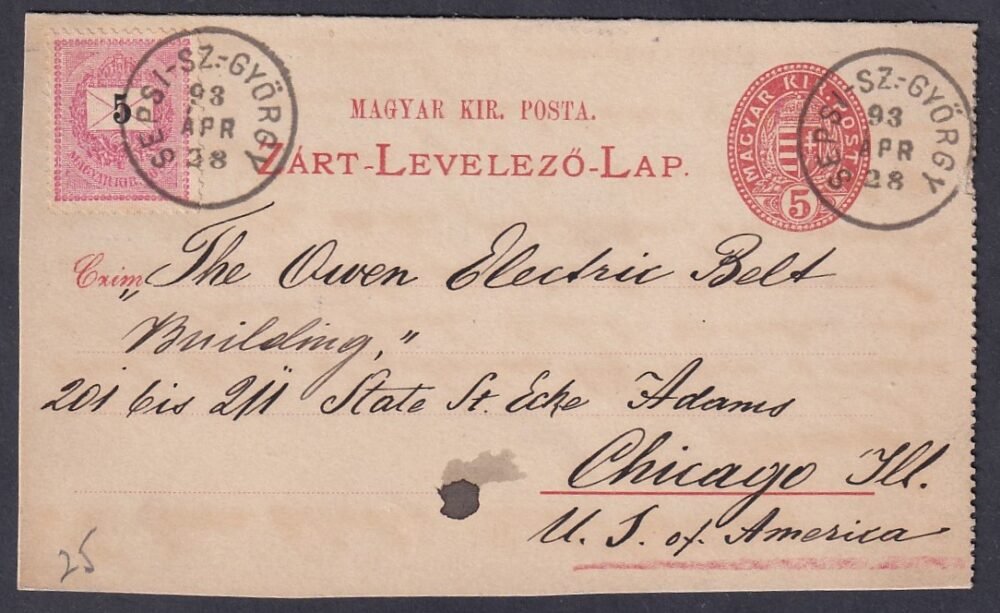 5
MAGYAR KIR.
SEPSI-SZ.-GYÖRGY
93
APR
28
MAGYAR KIR. POSTA.
ZÁRT-LEVELEZŐ-LAP.
MAGYAR KIR. POSTA
5
SEPSI-SZ.-GYÖRGY
93
APR
28
Czim
"The Owen Electric Belt
Building,"
201 bis 211 State St. Ecke Adams
Chicago Ill.
U. S. of. America
25